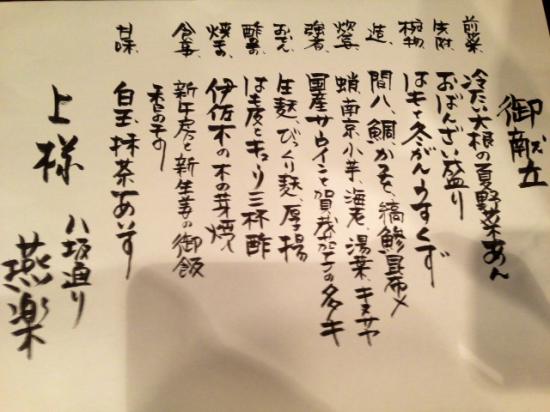 御献立
前菜、冷たい大根の夏野菜あん
先附、おばんざい盛り
椀物、はもと冬がんうすくず
造、間八、鯛かぶと、縞鯵昆布〆
炊合、蛸、南京小芋、海老、湯葉、キヌサヤ
強肴、国産サーロインと賀茂茄子のステーキ
おでん、生麩、びっくり麩、厚揚
酢の物、はも皮とキュウリ三杯酢
焼き物、伊佐木の木の芽焼
食事、新牛房と新生姜の御飯
香の物
甘味、白玉抹茶あいす
上様
八坂通り
燕楽